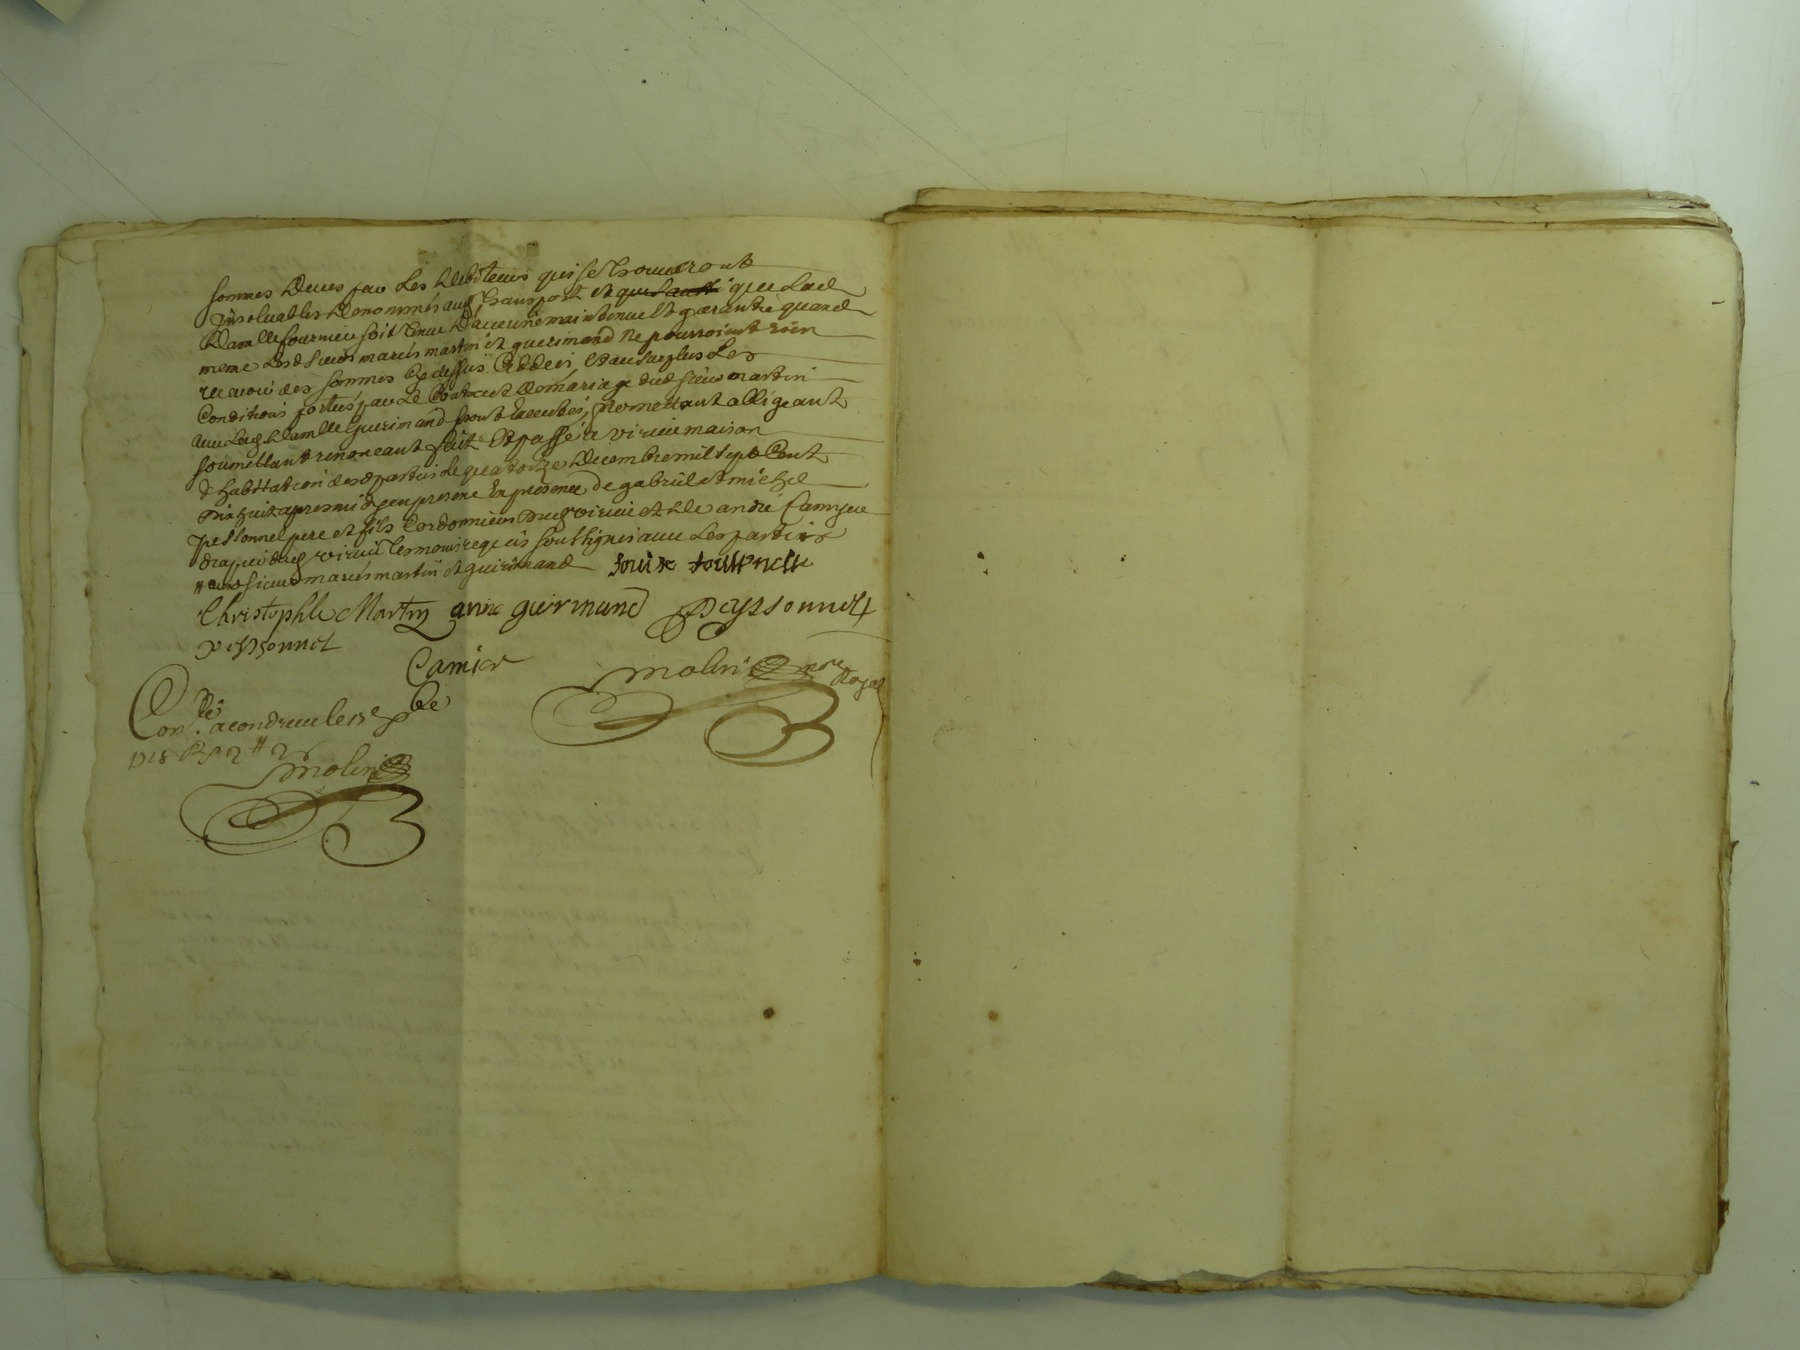 sommes deues par les debiteurs qui se trouveront
insoluables denommés aud transport et que sauff que lad
damlle fournier soit tenue daucune maintenue et garantie quand
meme lesd sieurs mariés martin et guerimand ne pourroient rien
recevoir des sommes cy dessus cedées et au surplus les
conditions portées par le contract de mariage dud sieur martin
avec lad damlle guerimand seront executées, promettant obligeant
soumettant renonceant fait et passé a virieu maison
d habitation desd parties le quatorze decembre mil sept cent
dix huit apres midy en presence de gabriel et michel
pessonnel pere et fils cordonniers dud virieu et de andré
drapier dud virieu temoins requis soussignés avec les parties
sieurs mariés martin et guerimand
Christophle Martin anne guerimand Peyssonnel
Peyssonnel
Camier molin nore Royal
Conlé a condrieu le
1718 R 2 #
molin